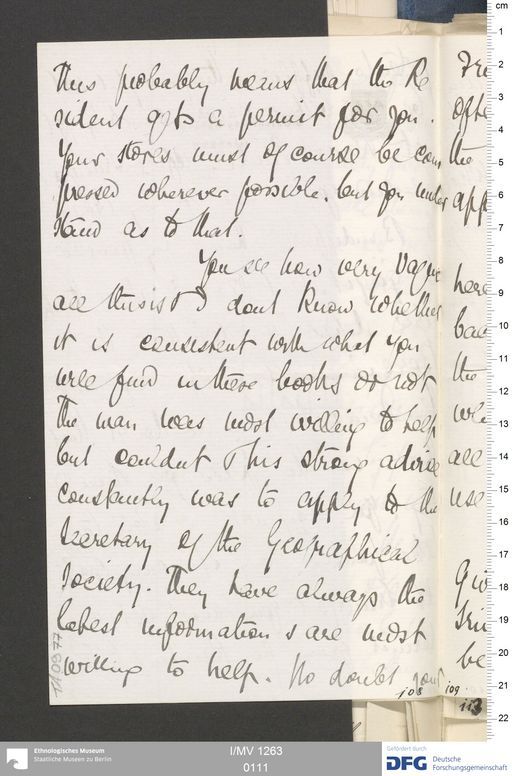 This probably means that the Re
sident gets a permit for you.
Your stores must of course be com
pressed wherever possible. but you under
stand as to that.
You see how very vague
all this is & I dont know whether
it is consistent with what you
will find in these books or not
The man was most willing to help
but couldnt & his strong advice
constantly was to apply to the
Secretary of the Geographical
Society. They have always the
latest information & are most
willing to help. No doubt your
108
109
113
the
app
here
the
all
use
be
cm
1
2
3
4
5
6
7
8
9
10
11
12
13
14
15
16
17
18
19
20
21
22
Ethnologisches Museum
Staatliche Museen zu Berlin
I/MV 1263
0111
Gefördert durch
DFG Deutsche
Forschungsgemeinschaft